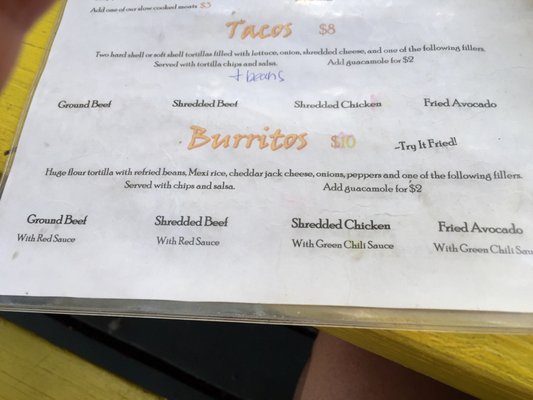 Add one of our slow cooked meats $3
Tacos $8
Two hard shell or soft shell tortillas filled with lettuce, onion, shredded cheese, and one of the following fillers.
Served with tortilla chips and salsa. Add guacamole for $2
+ beans
Ground Beef Shredded Beef Shredded Chicken Fried Avocado
Burritos $10 ~Try It Fried!
Huge flour tortilla with refried beans, Mexi rice, cheddar jack cheese, onions, peppers and one of the following fillers.
Served with chips and salsa. Add guacamole for $2
Ground Beef Shredded Beef Shredded Chicken Fried Avocado
With Red Sauce With Red Sauce With Green Chili Sauce With Green Chili Sau